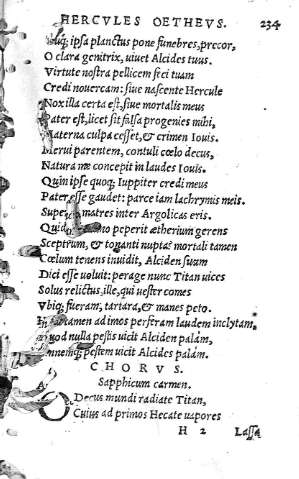 HERCVLES OETHEVS. 234
ipsa planctus pone funebres, precor,
O clara genitrix, uiuet Alcides tuus.
Virtute nostra pellicem feci tuam
Credi nouercam: siue nascente Hercule
Nox illa certa est, siue mortalis meus
Pater est, licet sit falsa progenies mihi,
Materna culpa cesset, & crimen Iouis.
Merui parentem, contuli cœlo decus,
Natura me concepit in laudes Iouis.
Quin ipse quoq; Iuppiter credi meus
Pater esse gaudet: parce iam lachrymis meis.
matres inter Argolicas eris.
Quid peperit ætherium gerens
Sceptrum, & tonanti nupta? mortali tamen
Cœlum tenens inuidit, Alciden suum
Dici esse uoluit: perage nunc Titan uices
Solus relictus, ille, qui uester comes
Vbiq; fueram, tartara, & manes peto.
tamen ad imos perferam laudem inclytam,
quod nulla pestis uicit Alciden palàm,
Omnemq; pestem uicit Alcides palàm.
CHORVS.
Sapphicum carmen.
O Decus mundi radiate Titan,
Cuius ad primos Hecate uapores
H 2 Lassa